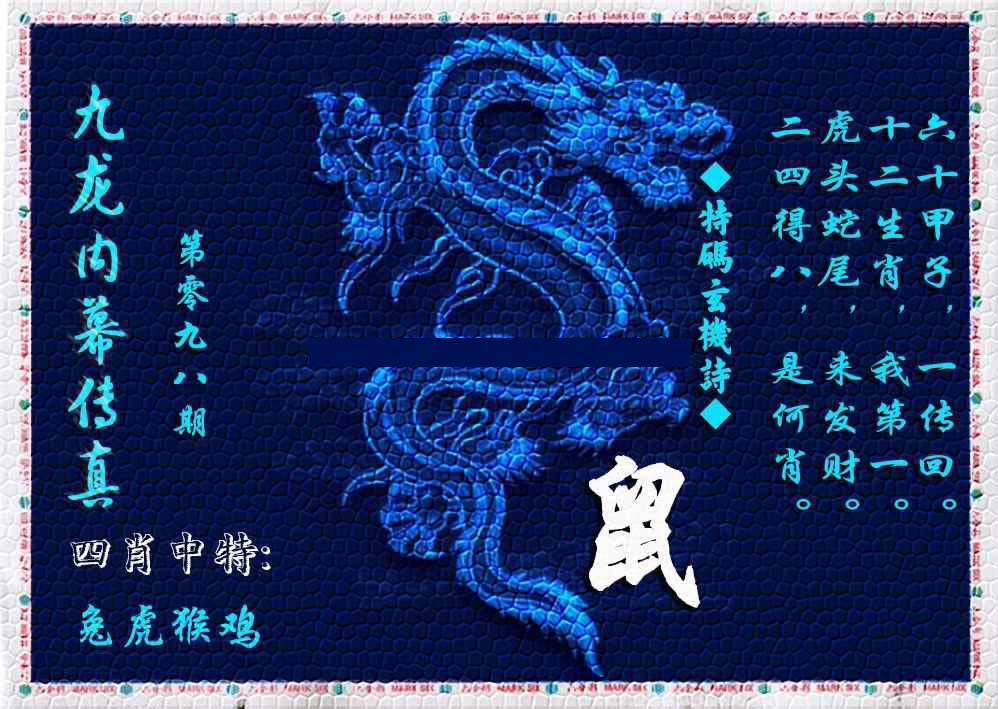 九龙内幕传真
第零九八期
四肖中特:
兔虎猴鸡
◆特碼玄機詩◆
六十甲子，一传回。
十二生肖，我第一。
虎头蛇尾，来发财。
二四得八，是何肖。
鼠
六合彩 MARK SIX